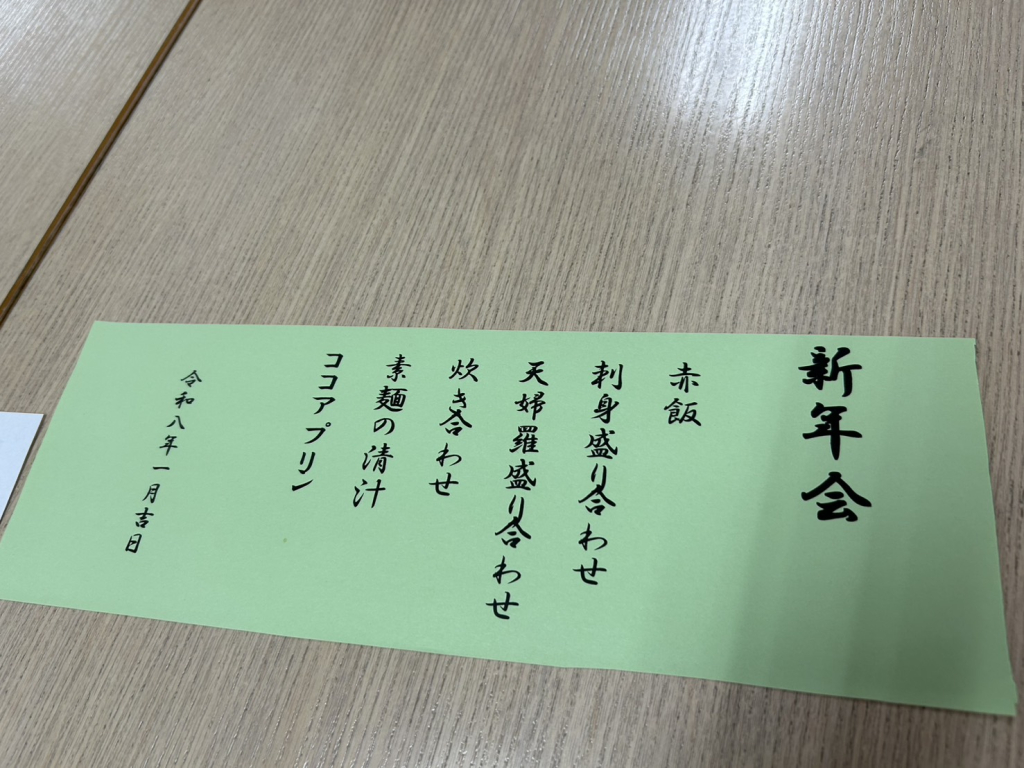 新年会
赤飯
刺身盛り合わせ
天婦羅盛り合わせ
炊き合わせ
素麺の清汁
ココアプリン
令和八年一月吉日